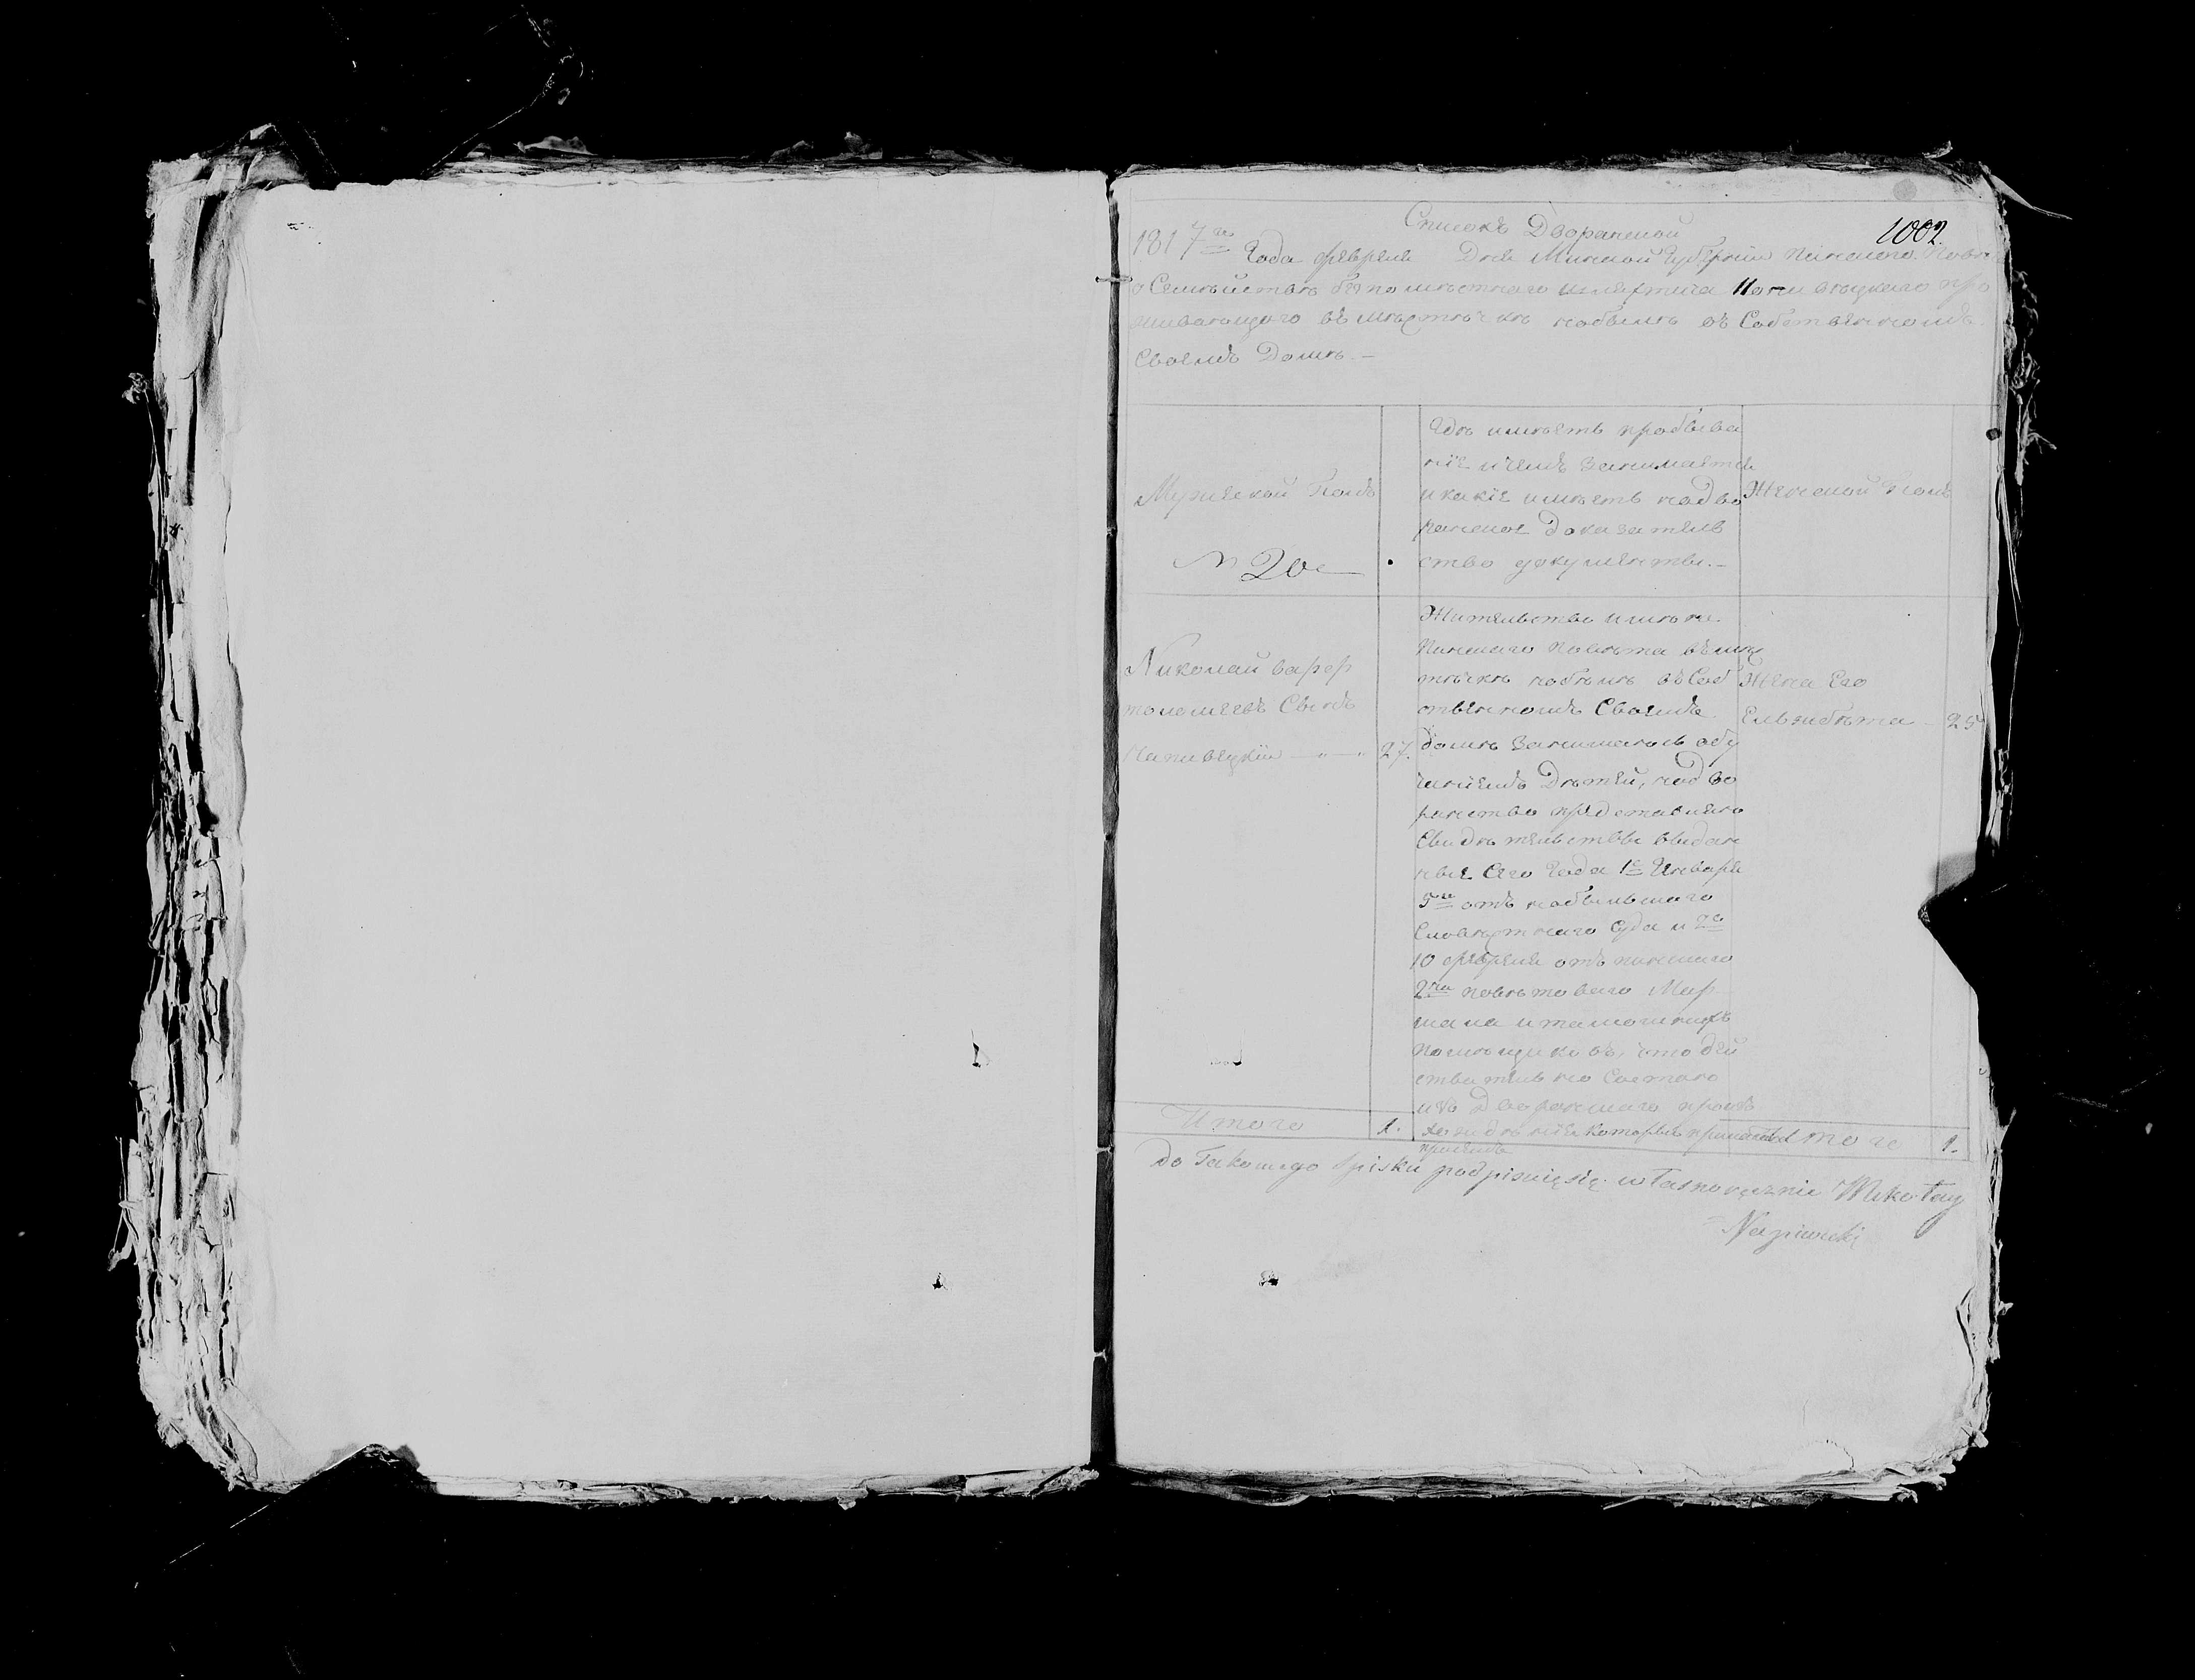 1002.
Списокъ Дворянской
1817го Года февраля Дня Минской Губерніи Пинского Пове
о Семѣйствѣ безпомѣстнаго шляхтича Напивѣцкаго про
живающаго въ мѣстѣчкѣ Кобылѣ въ Собственномъ
Своемъ Домѣ —
Мужеской Полъ
№ 20
Гдѣ имѣетъ пробыва
ніе и чемъ занимается
и какіе имѣетъ на дво
ранское доказатель
ство документы. —
Женской Полъ
Николай Варфо
толомеевъ Сынъ
Напивецкій — 27.
Жительство имѣю
Пинскаго Повѣта въ мѣс
тѣчкѣ въ Соб
ственномъ Своемъ
домѣ Занимаюсь обу
чаніемъ Дѣтей, на дво
ранство представляю
Свидѣтельствы выдан
ные Сего Года 1е Генваря
5го отъ
Суда и 2е
10 февраля отъ пинскаго
повѣтоваго Мар
шала и тамошнихъ
помѣщиковъ, что дей
ствительно Состою
изъ Дворанскаго произ
хожденія которые
прилагаю
Жена Его
Ельжбѣта — 25
Итого 1.
Итого 1.
do Takowego Spisku podpisuię się własnoręcznie Mikołay
Napiwecki